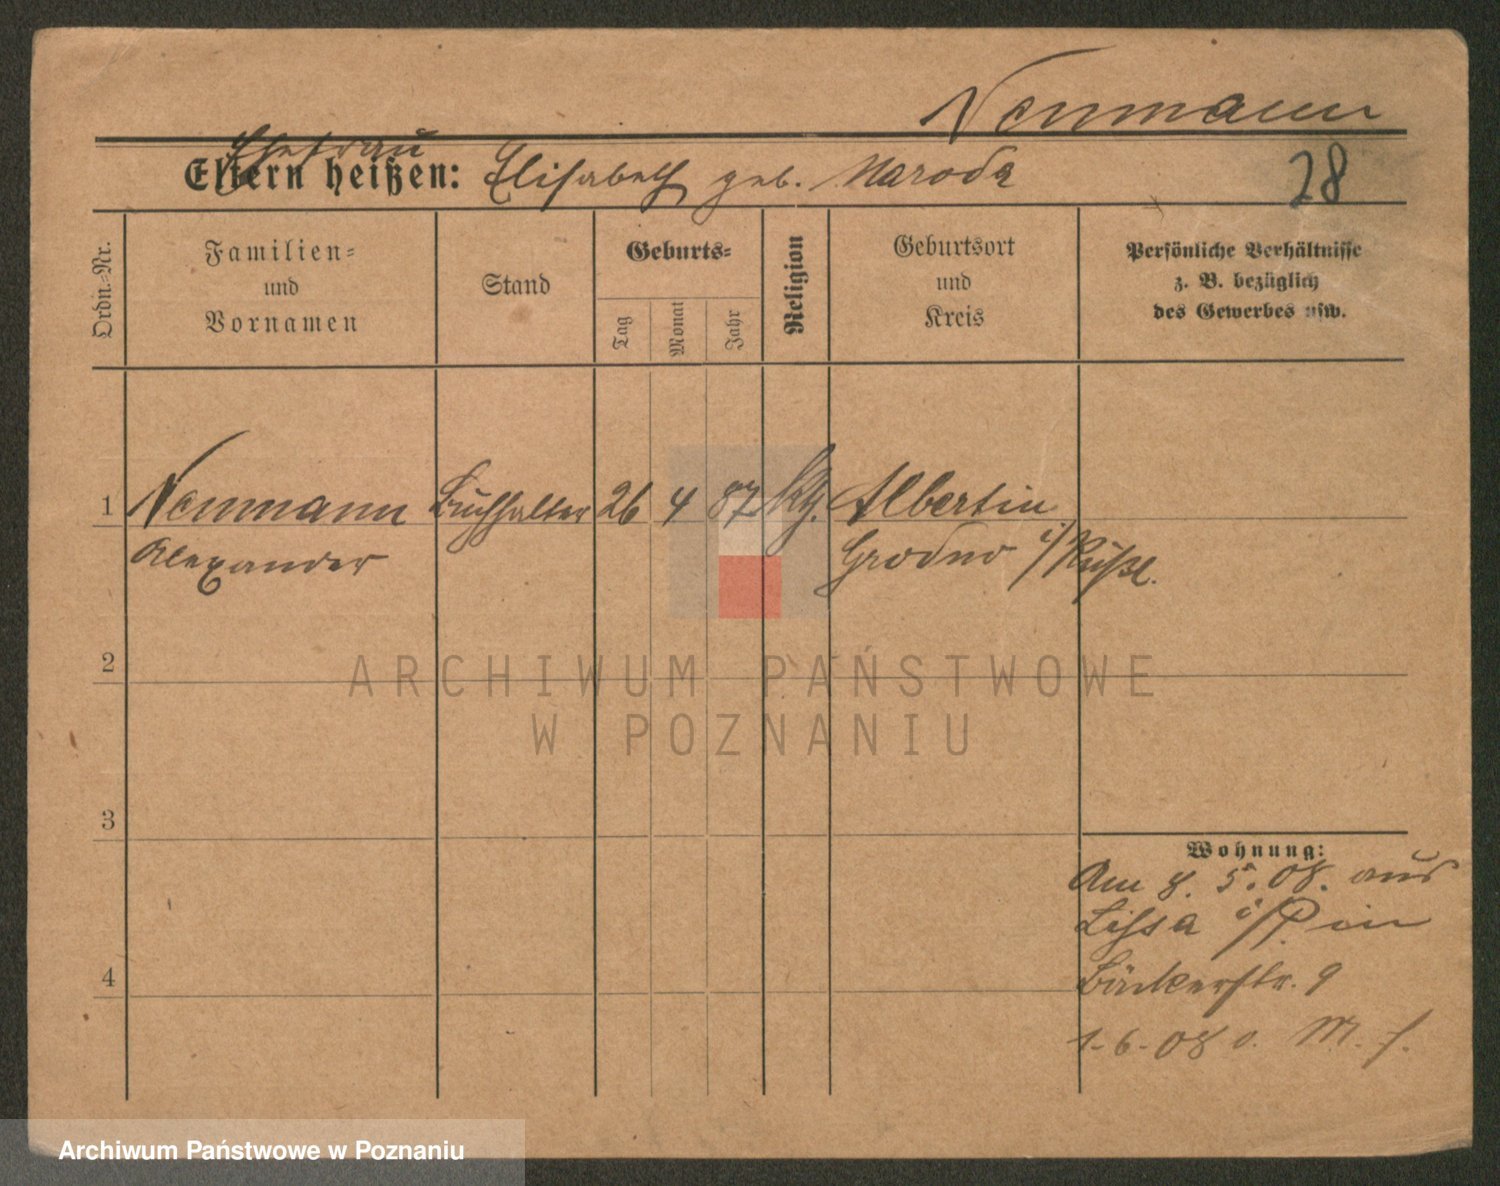 Neumann
Ehefrau
Eltern heißen: Elisabeth geb. Naroda
28
Ordn.-Nr.
Familien-
und
Vornamen
Stand
Geburts-
Tag
Monat
Jahr
Religion
Geburtsort
und
Kreis
Persönliche Verhältnisse
z. B. bezüglich
des Gewerbes usw.
1 Neumann Buchhalter 26 4 87 Albertin
Alexander Grodno i/Rußl.
2
3
4
Wohnung:
Am 8. 5. 08. aus
Lissa i/P. in
Bäckerstr. 9
1-6-08
ARCHIWUM PAŃSTWOWE
W POZNANIU
Archiwum Państwowe w Poznaniu